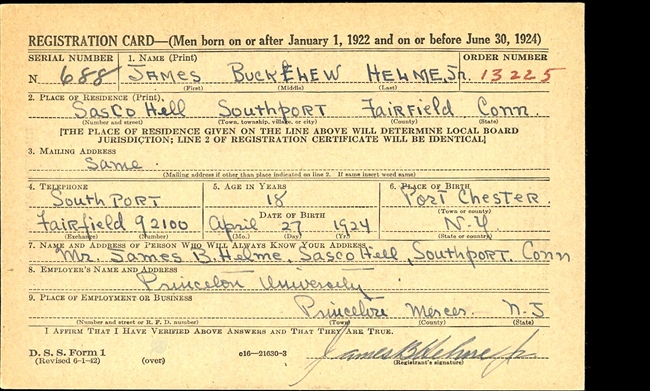 REGISTRATION CARD—(Men born on or after January 1, 1922 and on or before June 30, 1924)
SERIAL NUMBER 1. NAME (Print) ORDER NUMBER
N 688 JAMES BUCKELEW HELME, Jr. 13225
(First) (Middle) (Last)
2. PLACE OF RESIDENCE (Print)
Sasco Hell Southport Fairfield Conn.
(Number and street) (Town, township, village, or city) (County) (State)
[THE PLACE OF RESIDENCE GIVEN ON THE LINE ABOVE WILL DETERMINE LOCAL BOARD
JURISDICTION; LINE 2 OF REGISTRATION CERTIFICATE WILL BE IDENTICAL]
3. MAILING ADDRESS
Same.
(Mailing address if other than place indicated on line 2. If same insert word same)
4. TELEPHONE 5. AGE IN YEARS 6. PLACE OF BIRTH
South PORT 18 Port Chester.
DATE OF BIRTH (Town or county)
Fairfield 92100 April 27 1924 N.Y
(Exchange) (Number) (Mo.) (Day) (Yr.) (State or country)
7. NAME AND ADDRESS OF PERSON WHO WILL ALWAYS KNOW YOUR ADDRESS
Mr. James B. Helme, Sasco Hell, Southport, Conn
8. EMPLOYER'S NAME AND ADDRESS
Princeton University
9. PLACE OF EMPLOYMENT OR BUSINESS
Princeton Mercer N.J
(Number and street or R. F. D. number) (Town) (County) (State)
I AFFIRM THAT I HAVE VERIFIED ABOVE ANSWERS AND THAT THEY ARE TRUE.
D. S. S. Form 1
(Revised 6-1-42) (over) c16—21630-3 James B Helme Jr.
(Registrant's signature)